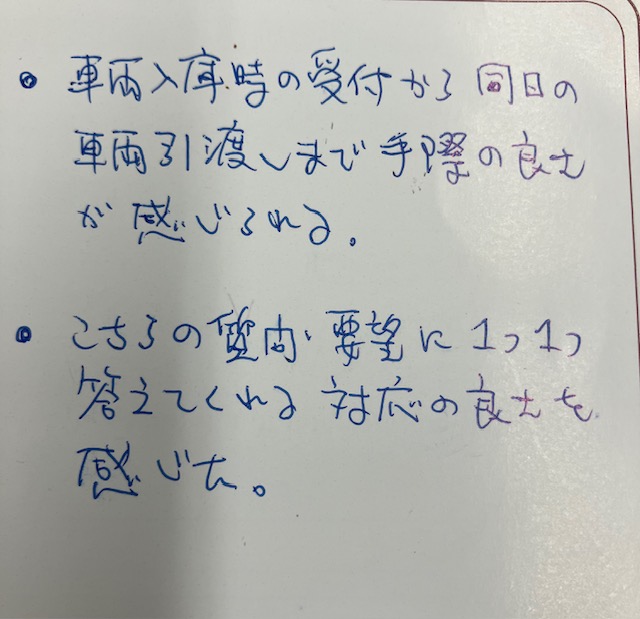 • 車両入庫時の受付から同日の
車両引渡しまで手際の良さ
が感じられる。
• こちらの質問・要望に1つ1つ
答えてくれる対応の良さを
感じた。